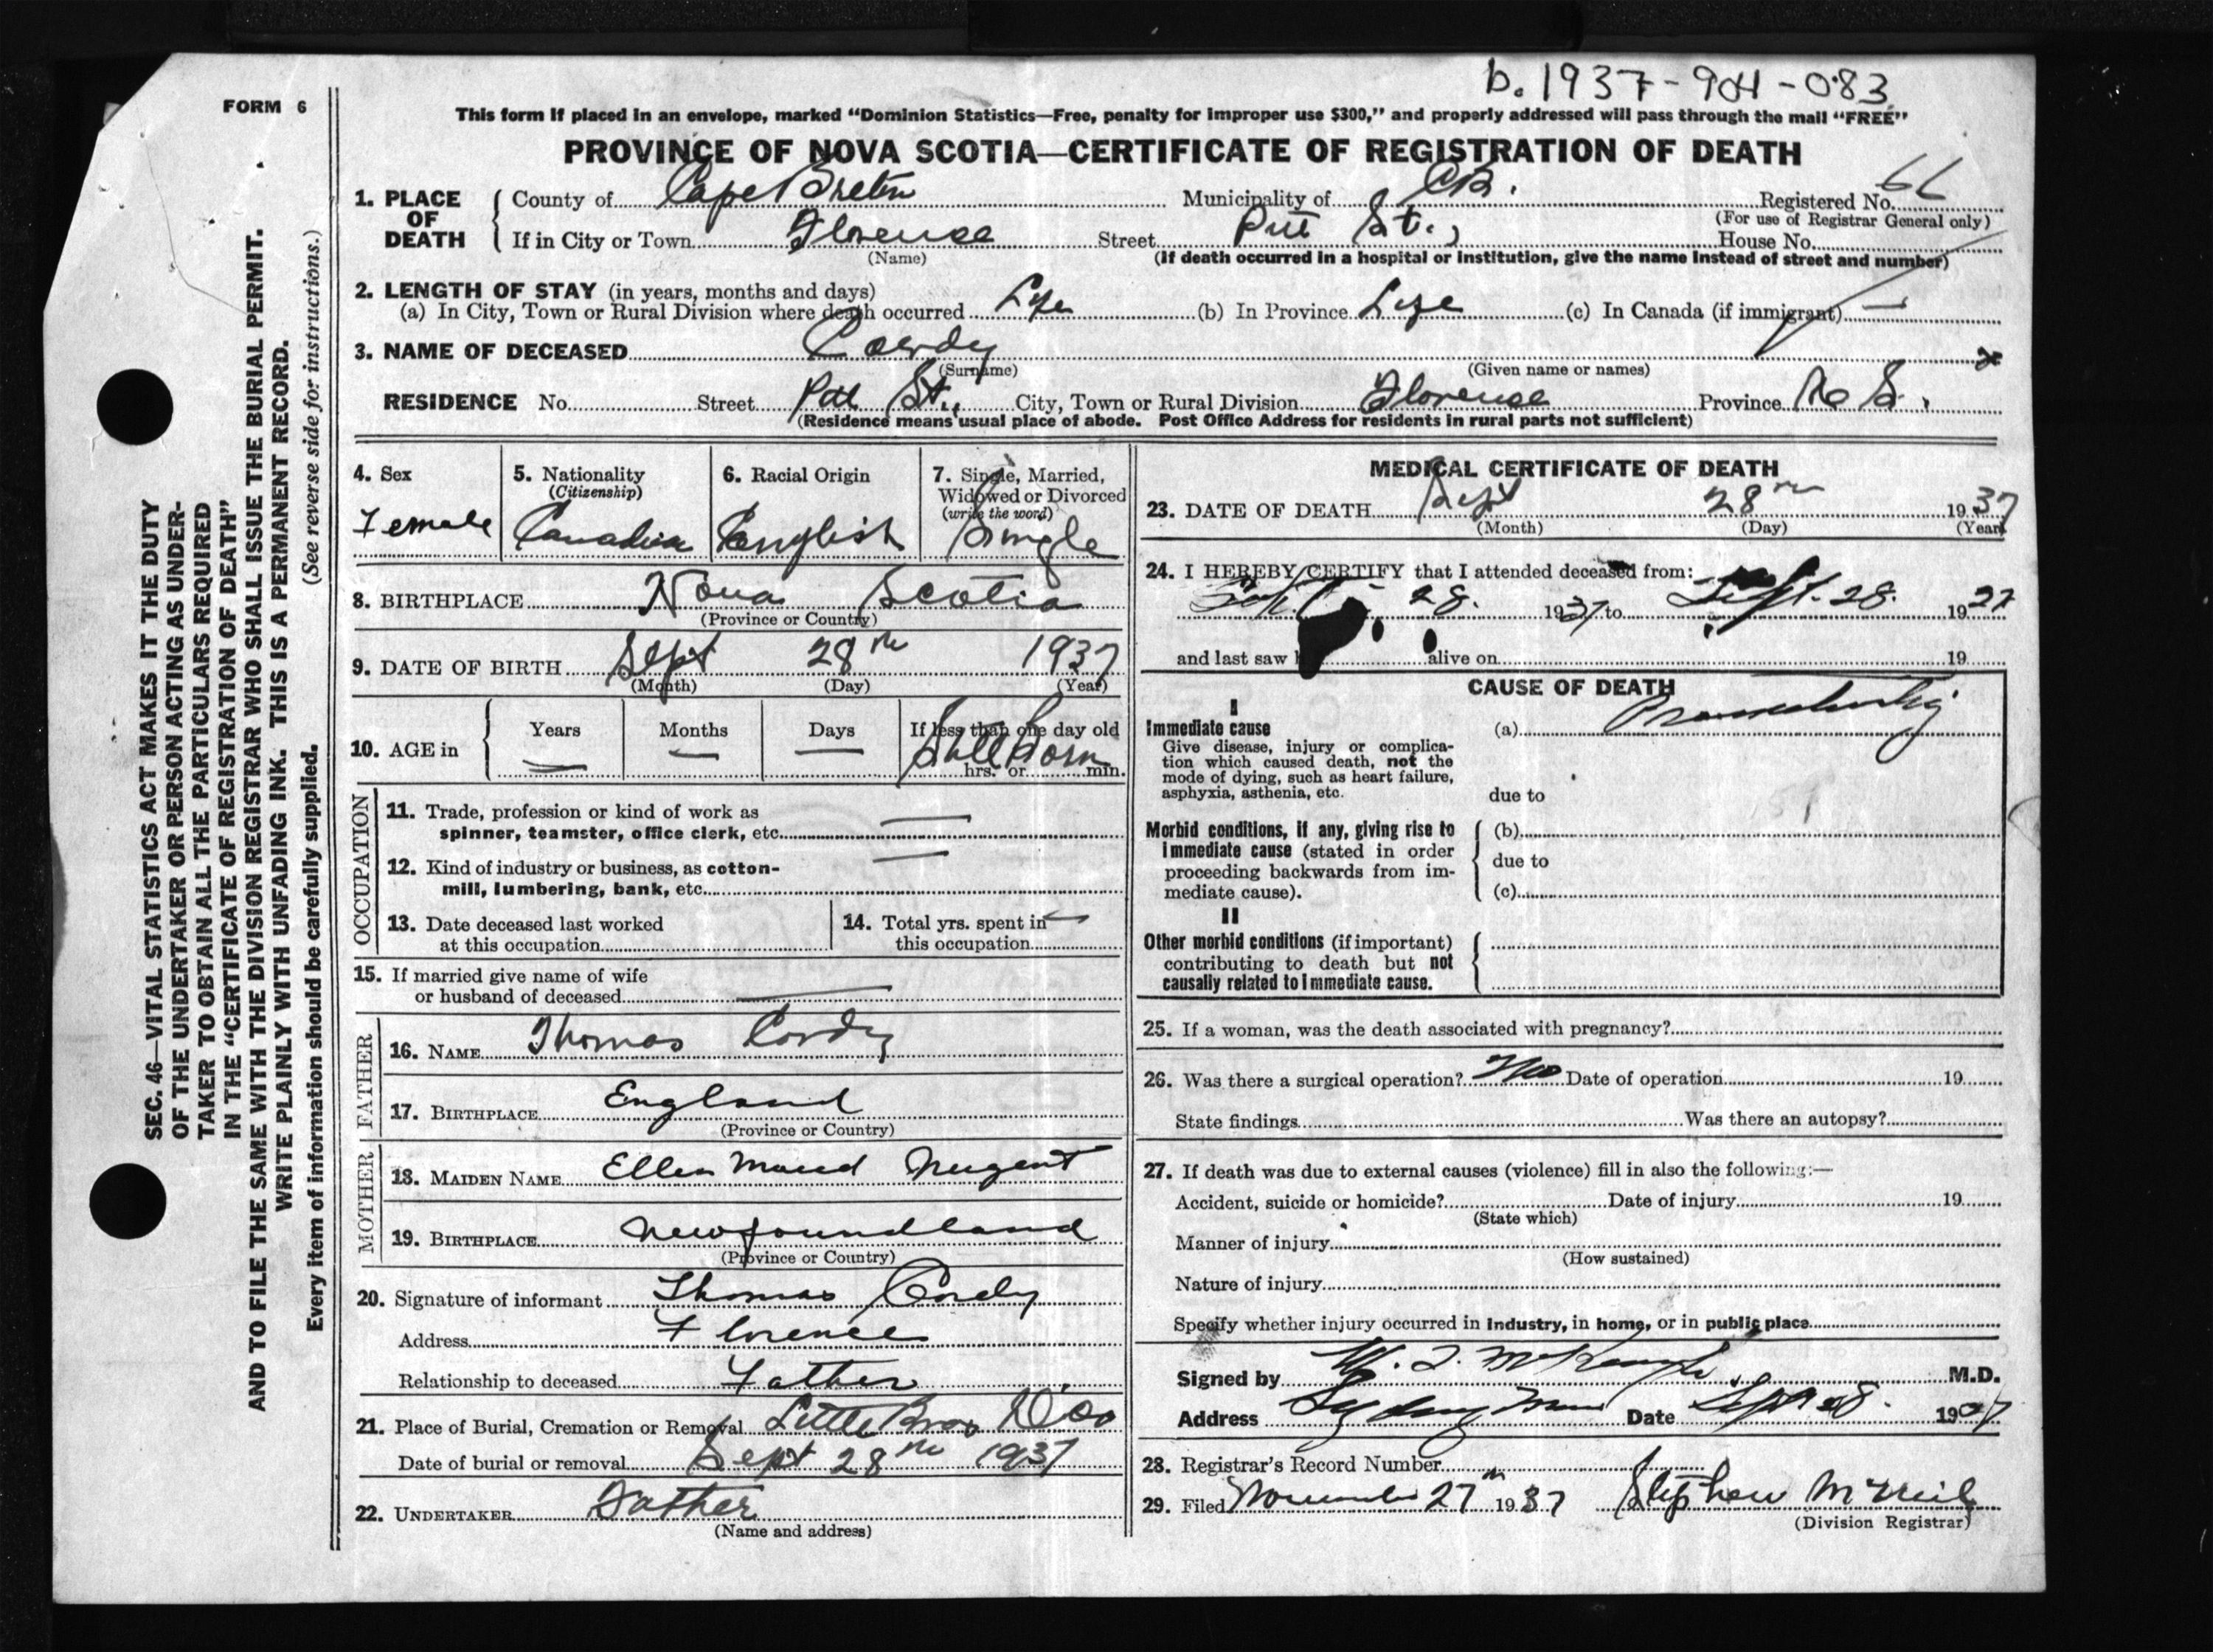 b. 1937-904-083
FORM 6
This form if placed in an envelope, marked "Dominion Statistics—Free, penalty for improper use $300," and properly addressed will pass through the mail "FREE"
PROVINCE OF NOVA SCOTIA—CERTIFICATE OF REGISTRATION OF DEATH
1. PLACE OF DEATH County of Cape Breton Municipality of C.B. Registered No. 66
(For use of Registrar General only)
If in City or Town Florence Street Pitt St., House No.
(Name) (If death occurred in a hospital or institution, give the name instead of street and number)
2. LENGTH OF STAY (in years, months and days)
(a) In City, Town or Rural Division where death occurred Life (b) In Province Life (c) In Canada (if immigrant) —
3. NAME OF DECEASED Cordy
(Surname) (Given name or names)
RESIDENCE No. Street Pitt St., City, Town or Rural Division Florence Province N.S.
(Residence means usual place of abode. Post Office Address for residents in rural parts not sufficient)
4. Sex
Female
5. Nationality
(Citizenship)
Canadian
6. Racial Origin
English
7. Single, Married,
Widowed or Divorced
(write the word)
Single
8. BIRTHPLACE Nova Scotia
(Province or Country)
9. DATE OF BIRTH Sept 28th 1937
(Month) (Day) (Year)
10. AGE in Years — Months — Days — If less than one day old
Still Born
hrs. or min.
OCCUPATION
11. Trade, profession or kind of work as
spinner, teamster, office clerk, etc. —
12. Kind of industry or business, as cotton-
mill, lumbering, bank, etc. —
13. Date deceased last worked
at this occupation
14. Total yrs. spent in —
this occupation
15. If married give name of wife
or husband of deceased —
FATHER
16. NAME Thomas Cordy
17. BIRTHPLACE England
(Province or Country)
MOTHER
18. MAIDEN NAME Ellen Maud Nugent
19. BIRTHPLACE Newfoundland
(Province or Country)
20. Signature of informant Thomas Cordy
Address Florence
Relationship to deceased Father
21. Place of Burial, Cremation or Removal Little Bras D'or
Date of burial or removal Sept 28th 1937
22. UNDERTAKER Father
(Name and address)
MEDICAL CERTIFICATE OF DEATH
23. DATE OF DEATH Sept 28th 1937
(Month) (Day) (Year)
24. I HEREBY CERTIFY that I attended deceased from:
Sept. 28. 1937 to Sept. 28. 1937
and last saw h alive on 19
CAUSE OF DEATH
I
Immediate cause (a) Prematurity
Give disease, injury or complica-
tion which caused death, not the
mode of dying, such as heart failure,
asphyxia, asthenia, etc.
due to
Morbid conditions, if any, giving rise to (b)
immediate cause (stated in order
due to
proceeding backwards from im-
mediate cause). (c)
II
Other morbid conditions (if important)
contributing to death but not
causally related to immediate cause.
25. If a woman, was the death associated with pregnancy?
26. Was there a surgical operation? No Date of operation 19
State findings Was there an autopsy?
27. If death was due to external causes (violence) fill in also the following:—
Accident, suicide or homicide? Date of injury 19
(State which)
Manner of injury
(How sustained)
Nature of injury
Specify whether injury occurred in industry, in home, or in public place
Signed by M.D.
Address Sydney Mines Date Sept 28. 1937
28. Registrar's Record Number
29. Filed November 27th 1937 Stephen McNeil
(Division Registrar)
SEC. 46—VITAL STATISTICS ACT MAKES IT THE DUTY
OF THE UNDERTAKER OR PERSON ACTING AS UNDER-
TAKER TO OBTAIN ALL THE PARTICULARS REQUIRED
IN THE "CERTIFICATE OF REGISTRATION OF DEATH"
AND TO FILE THE SAME WITH THE DIVISION REGISTRAR WHO SHALL ISSUE THE BURIAL PERMIT.
WRITE PLAINLY WITH UNFADING INK. THIS IS A PERMANENT RECORD.
Every item of information should be carefully supplied. (See reverse side for instructions.)